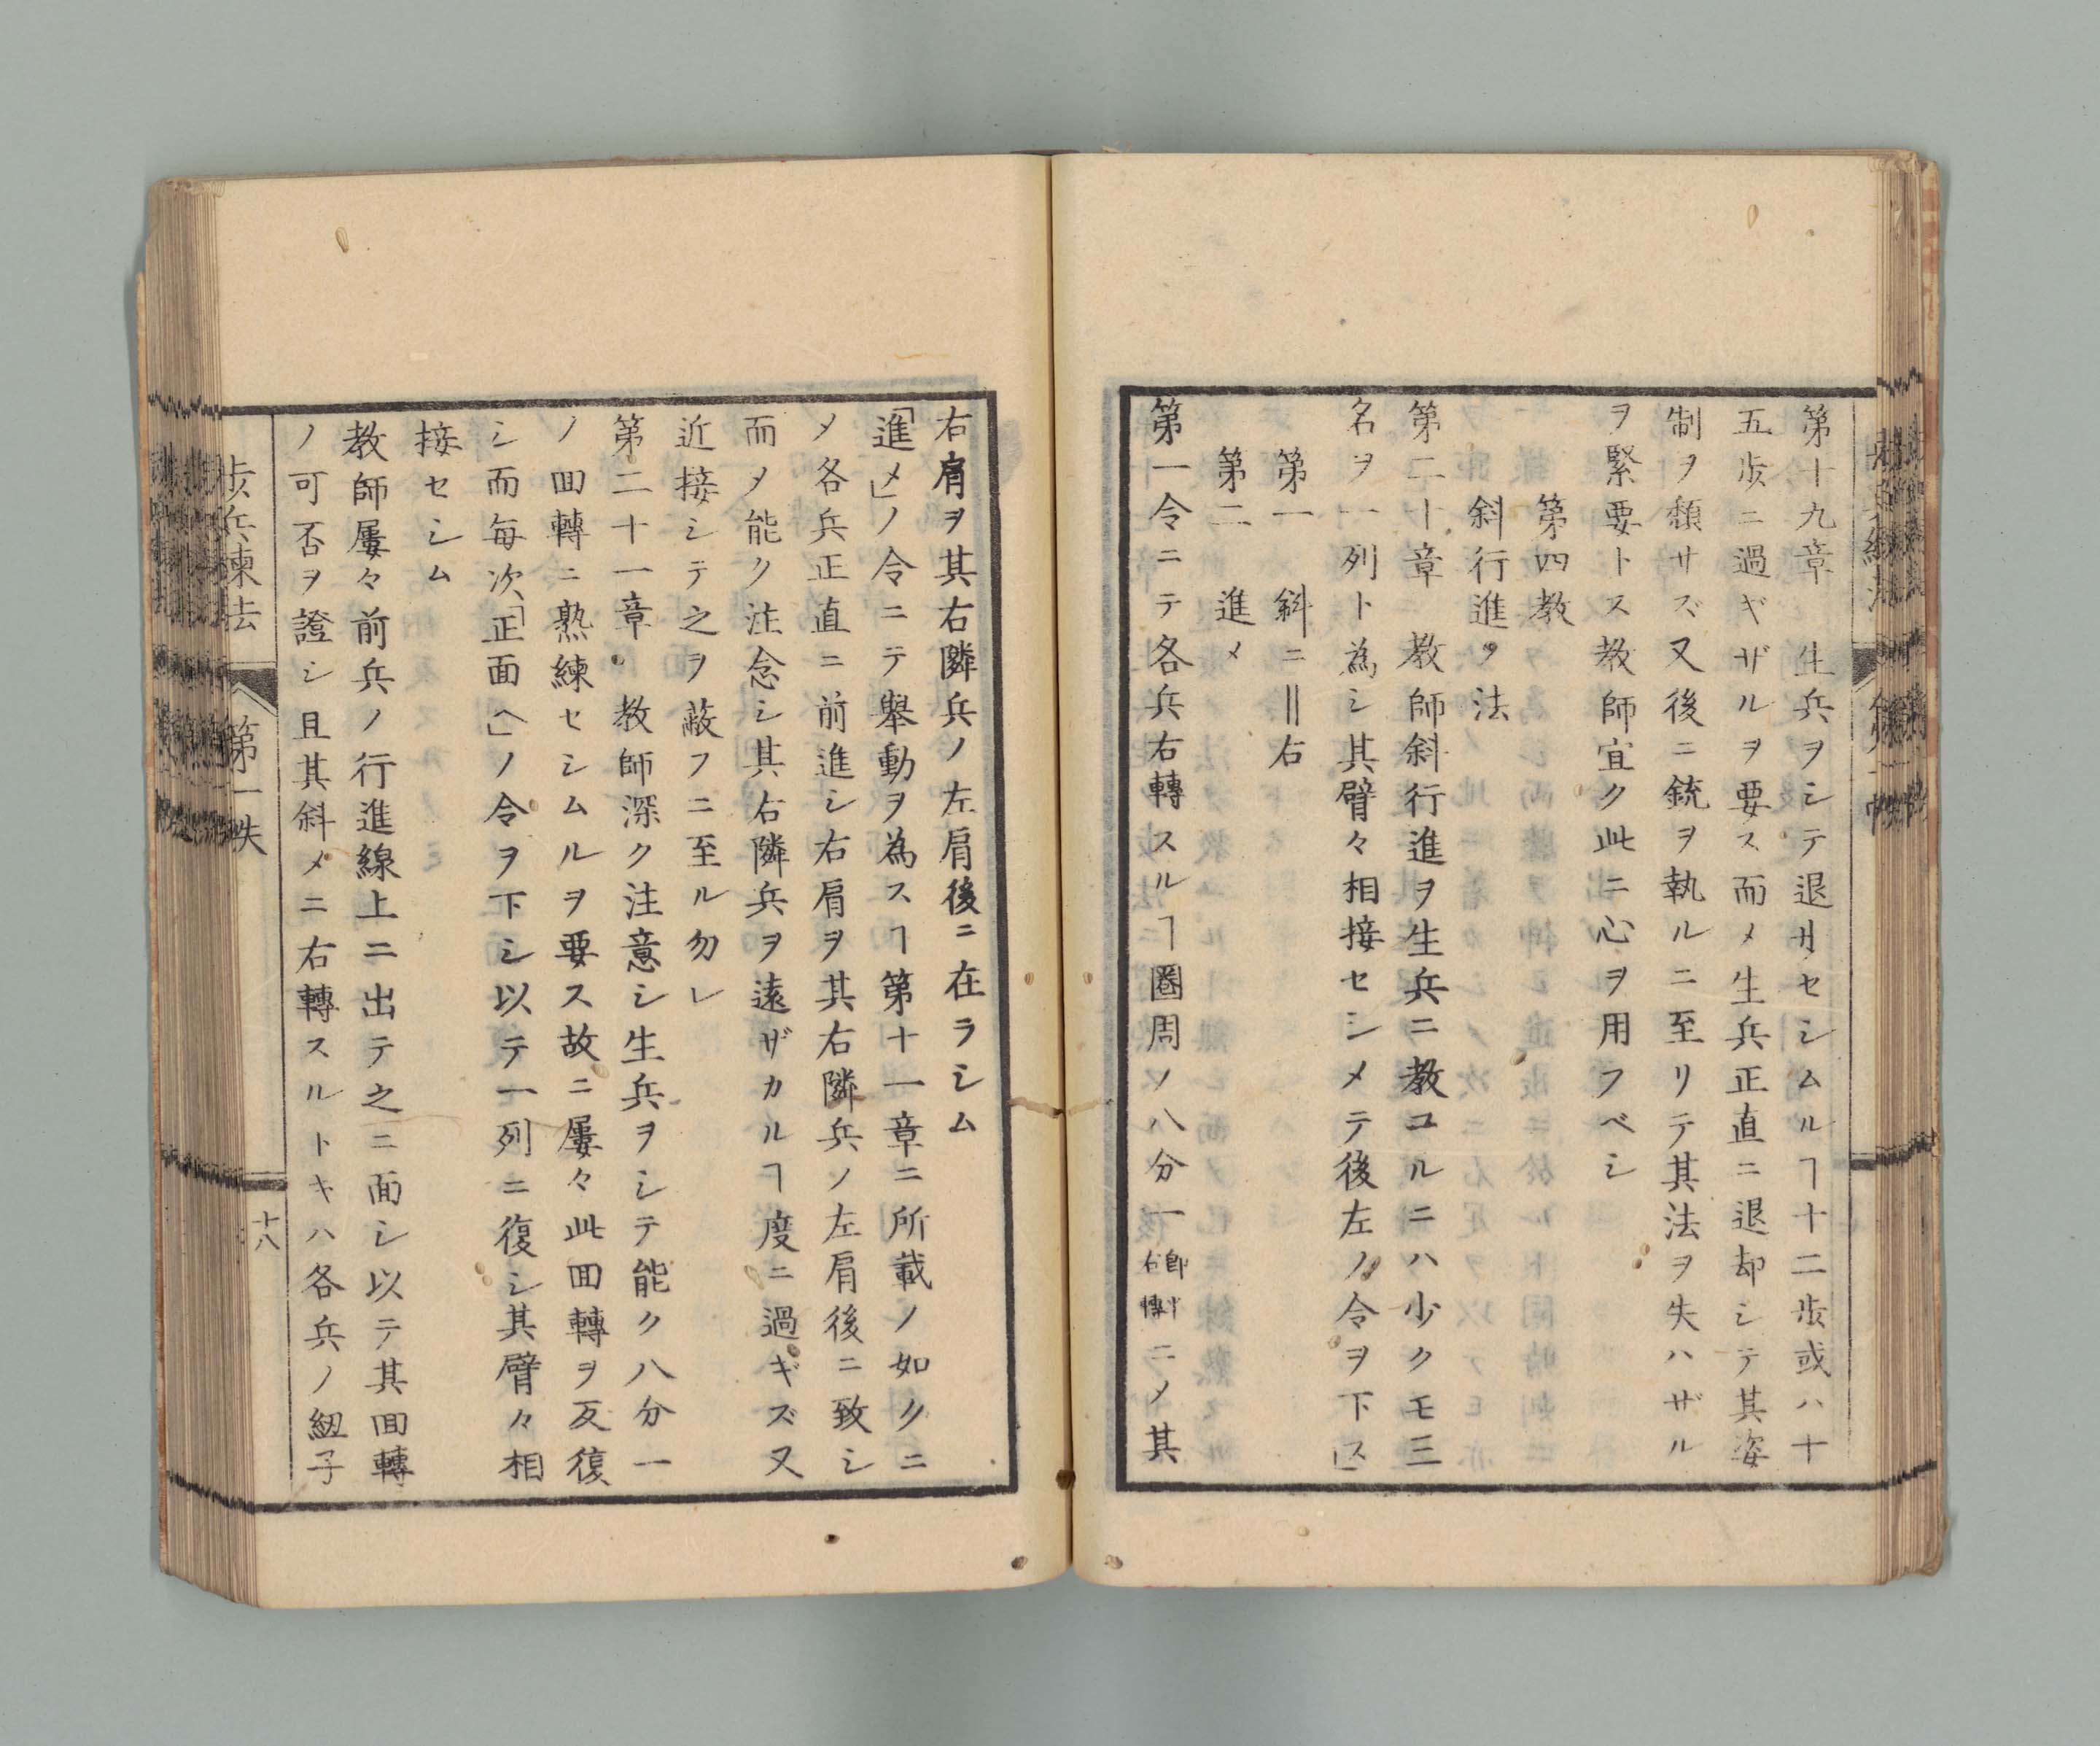 第十九章 生兵ヲシテ退却セシムルヿ十二歩或ハ十
五歩ニ過ギザルヲ要ス而メ生兵正直ニ退却シテ其姿
制ヲ頽サズ又後ニ銃ヲ執ルニ至リテ其法ヲ失ハザル
ヲ緊要トス教師宜ク此ニ心ヲ用フベシ
第四教
斜行進ノ法
第二十章 教師斜行進ヲ生兵ニ教ユルニハ少クモ三
名ヲ一列ト為シ其臂々相接セシメテ後左ノ令ヲ下ス」
第一 斜ニ‖右
第二 進メ
第一令ニテ各兵右轉スルヿ圏周ノ八分一即半右轉ニメ其
右肩ヲ其右隣兵ノ左肩後ニ在ラシム
「進メ」ノ令ニテ擧動ヲ為スヿ第十一章ニ所載ノ如クニ
メ各兵正直ニ前進シ右肩ヲ其右隣兵ノ左肩後ニ致シ
而メ能ク注念シ其右隣兵ヲ遠ザカルヿ度ニ過ギズ又
近接シテ之ヲ蔽フニ至ル勿レ
第二十一章 教師深ク注意シ生兵ヲシテ能ク八分一
ノ回轉ニ熟練セシムルヲ要ス故ニ屢々此回轉ヲ反復
シ而毎次「正面ヘ」ノ令ヲ下シ以テ一列ニ復シ其臂々相
接セシム
教師屢々前兵ノ行進線上ニ出テ之ニ面シ以テ其回轉
ノ可否ヲ證シ且其斜メニ右轉スルトキハ各兵ノ紐子
歩兵練法 第一帙 十八